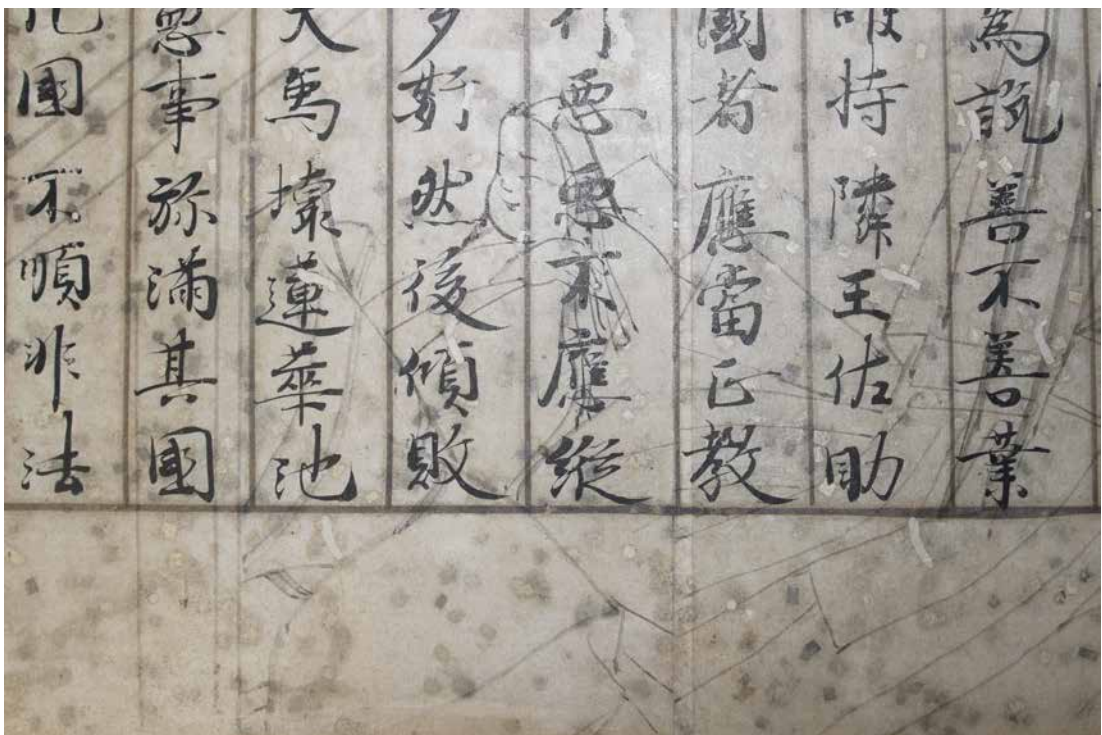 為說善不善業
護持隣王佐助
國者應當正教
行惡惡不應縱
多然後傾敗
大象壞蓮華池
惡事弥滿其國
國不順非法